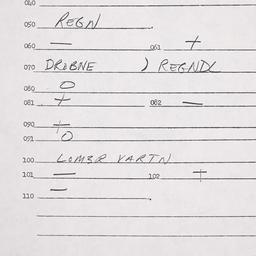 040
050 REGN
060 — 061 +
070 DRÆBNE ) REGNDL
080 O
081 + 082 —
090 +
091 O
100 LOMBR VARTN
101 — 102 +
110 —